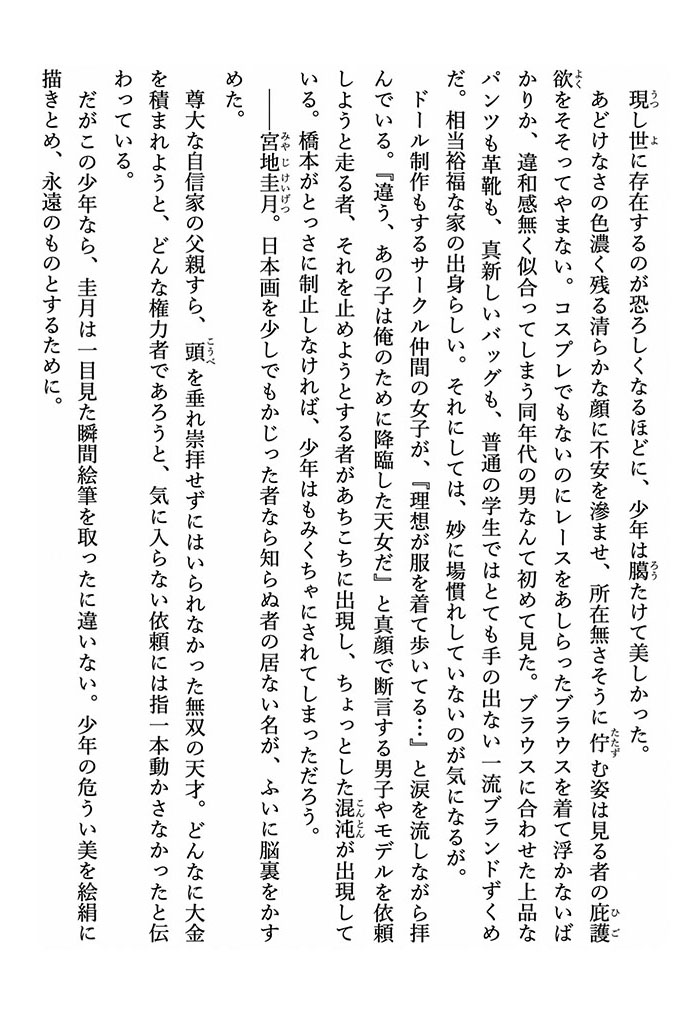 現し世に存在するのが恐ろしくなるほどに、少年は臈たけて美しかった。
あどけなさの色濃く残る清らかな顔に不安を滲ませ、所在無さそうに佇む姿は見る者の庇護
欲をそそってやまない。コスプレでもないのにレースをあしらったブラウスを着て浮かないば
かりか、違和感無く似合ってしまう同年代の男なんて初めて見た。ブラウスに合わせた上品な
パンツも革靴も、真新しいバッグも、普通の学生ではとても手の出ない一流ブランドずくめ
だ。相当裕福な家の出身らしい。それにしては、妙に場慣れしていないのが気になるが。
ドール制作もするサークル仲間の女子が、『理想が服を着て歩いてる…』と涙を流しながら拝
んでいる。『違う、あの子は俺のために降臨した天女だ』と真顔で断言する男子やモデルを依頼
しようと走る者、それを止めようとする者があちこちに出現し、ちょっとした混沌が出現して
いる。橋本がとっさに制止しなければ、少年はもみくちゃにされてしまっただろう。
――宮地圭月。日本画を少しでもかじった者なら知らぬ者の居ない名が、ふいに脳裏をかす
めた。
尊大な自信家の父親すら、頭を垂れ崇拝せずにはいられなかった無双の天才。どんなに大金
を積まれようと、どんな権力者であろうと、気に入らない依頼には指一本動かさなかったと伝
わっている。
だがこの少年なら、圭月は一目見た瞬間絵筆を取ったに違いない。少年の危うい美を絵絹に
描きとめ、永遠のものとするために。